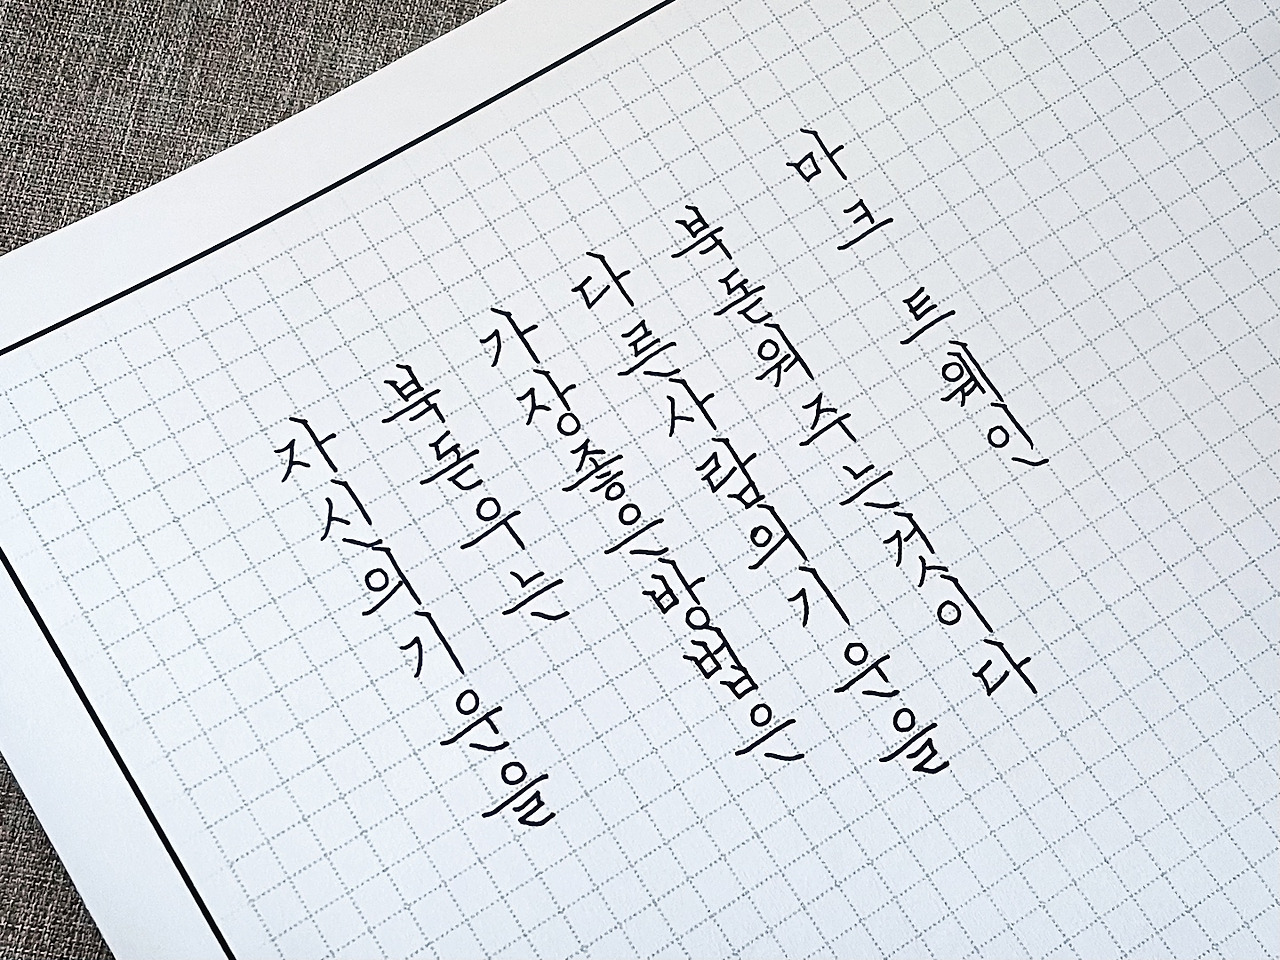 자신의 기운을
북돋우는
가장 좋은 방법은
다른 사람의 기운을
북돋워 주는 것이다
마크 트웨인